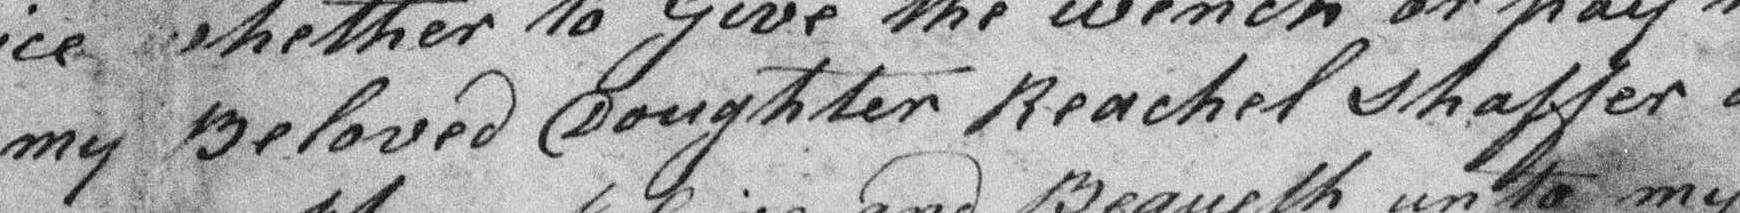 ice whether to Give the wench or pay
my Beloved Doughter Reachel Shaffer
and Bequeth unto my